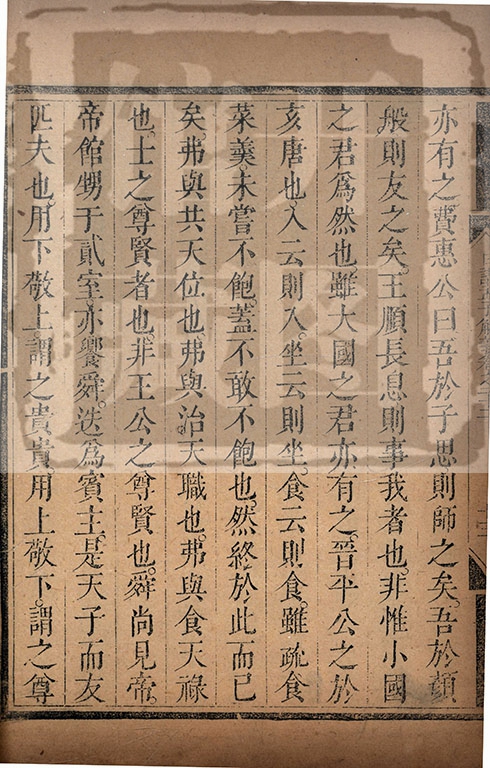 亦有之費惠公曰吾於子思則師之矣。吾於顏
般則友之矣。王順長息則事我者也。非惟小國
之君爲然也雖大國之君亦有之。晉平公之於
亥唐也入云則入。坐云則坐。食云則食。雖疏食
菜羹未嘗不飽。蓋不敢不飽也。然終於此而已
矣。弗與共天位也弗與治天職也。弗與食天祿
也。士之尊賢者也。非王公之尊賢也。舜尚見帝。
帝館甥于貳室。亦饗舜。迭爲賓主。是天子而友
匹夫也。用下敬上謂之貴貴用上敬下。謂之尊